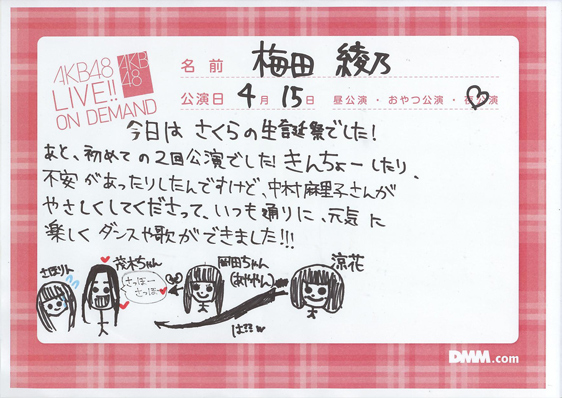 AKB48
LIVE!!
ON DEMAND
AKB
48
名前 梅田 綾乃
公演日 4月 15日 昼公演・おやつ公演・夜公演
今日は さくらの生誕祭でした!
あと、初めての2回公演でした!きんちょーしたり、
不安があったりしたんですけど、中村麻里子さんが
やさしくしてくださって、いつも通りに、元気に
楽しく ダンスや歌ができました!!!
さほりん
茂木ちゃん
さっほー
さっほー
岡田ちゃん
(あややん)
涼花
DMM.com